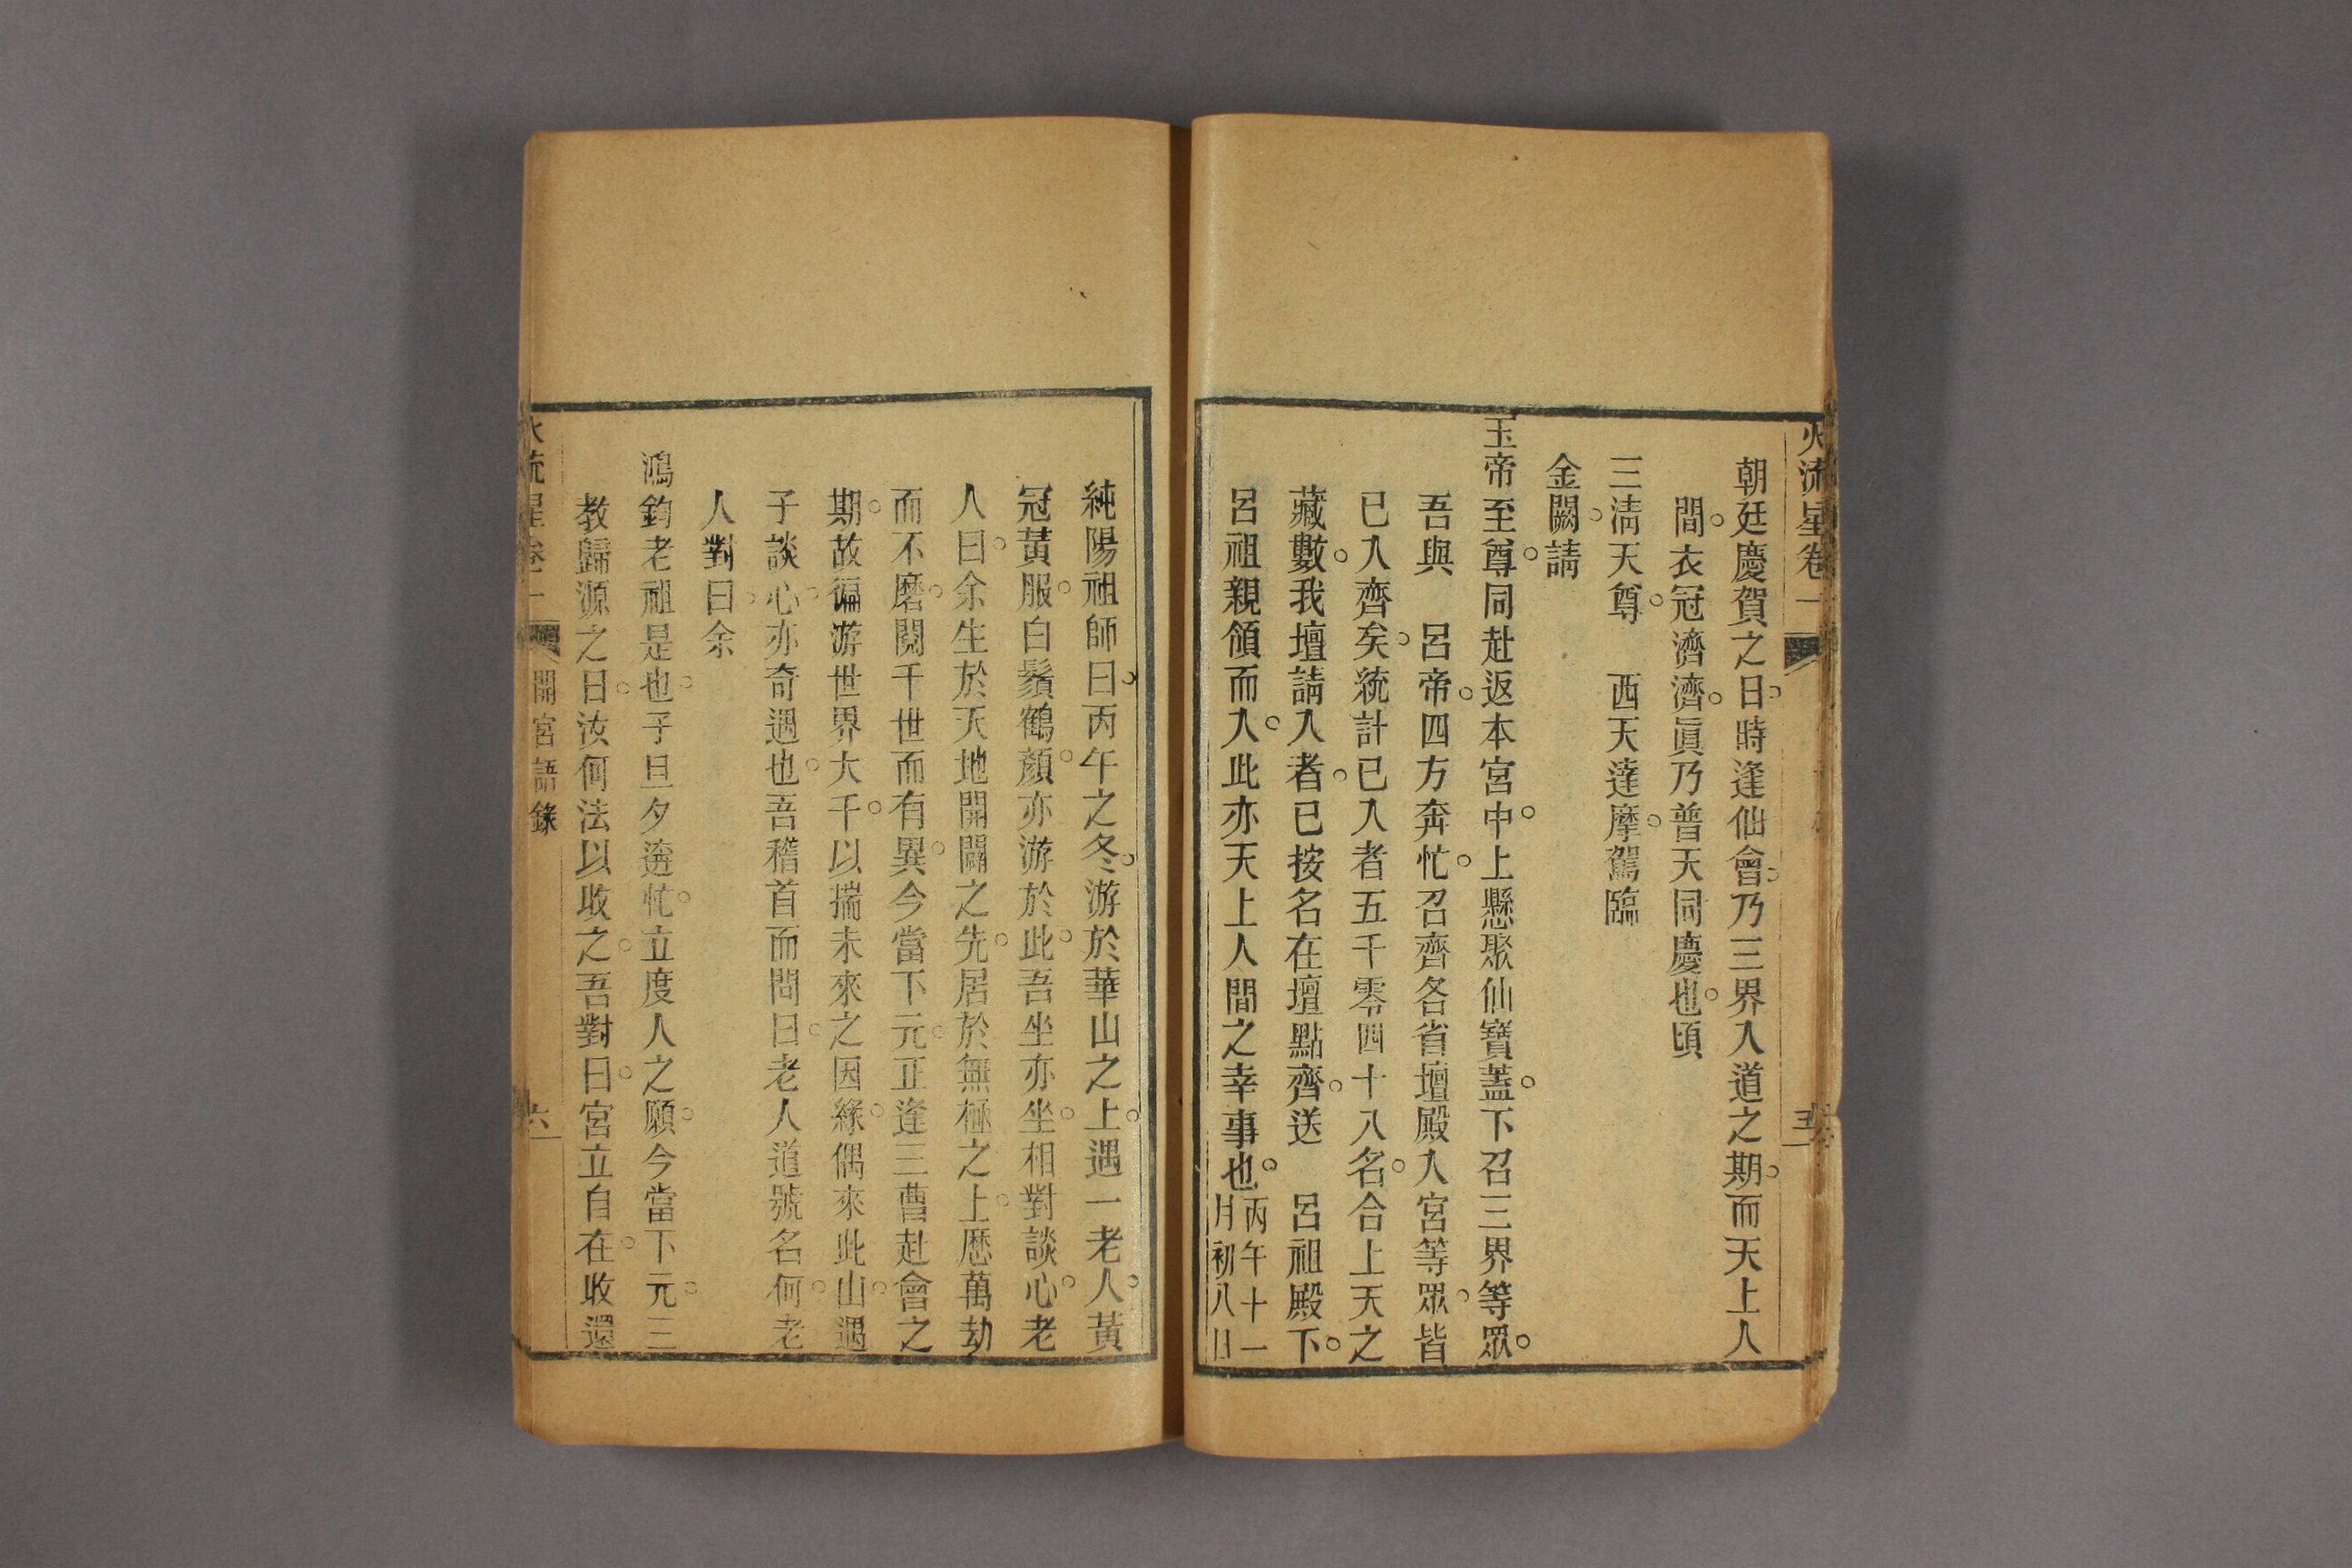 火流星卷一
朝廷慶賀之日。時逢仙會。乃三界入道之期。而天上人
間。衣冠濟濟。眞乃普天同慶也。頃
三清天尊。　西天達摩。駕臨
金闕。請
玉帝至尊。同赴返本宮中。上懸聚仙寶蓋。下召三界等眾。
吾與　呂帝。四方奔忙。召齊各省壇殿入宮等眾。皆
已入齊矣。統計已入者五千零四十八名。合上天之
藏數。我壇請入者。已按名在壇點齊。送　呂祖殿下。
呂祖親領而入。此亦天上人間之幸事也。丙午十一月初八日
純陽祖師曰。丙午之冬。游於華山之上。遇一老人。黃
冠黃服。白鬚鶴顏。亦游於此。吾坐亦坐。相對談心。老
人曰。余生於天地開闢之先。居於無極之上。歷萬劫
而不磨。閱千世而有異。今當下元。正逢三曹赴會之
期。故徧游世界大千。以揣未來之因緣。偶來此山。遇
子談心。亦奇遇也。吾稽首而問曰。老人道號名何。老
人對曰。余
鴻鈞老祖是也。子旦夕逩忙。立度人之願。今當下元。三
教歸源之日。汝何法以收之。吾對曰。宮立自在。收還
開宮語錄
六